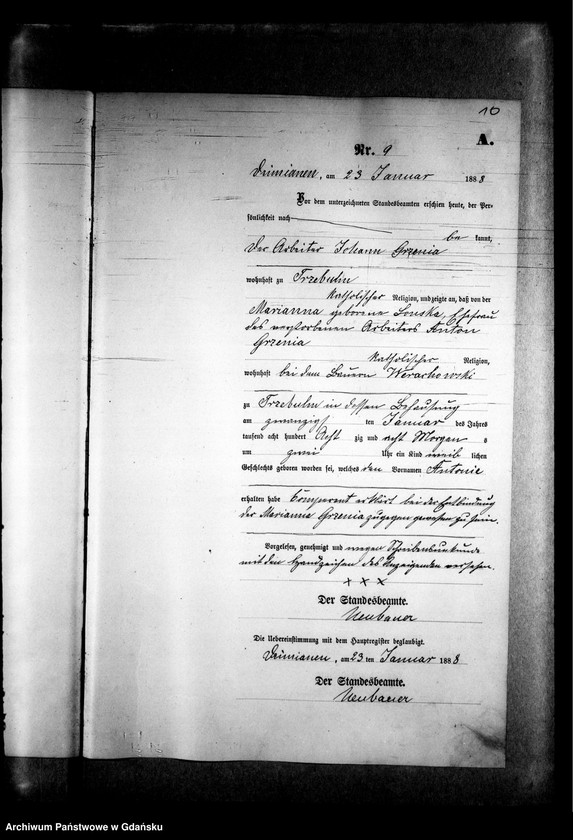 10
A.
Nr. 9
Dzimianen, am 23 Januar 1888
Vor dem unterzeichneten Standesbeamten erschien heute, der Per-
sönlichkeit nach
be kannt,
der Arbeiter Johann Grzenia
wohnhaft zu Trzebuhn
katholischer Religion, und zeigte an, daß von der
Marianna geborene Lonska, Ehefrau
des verstorbenen Arbeiters Anton
Grzenia
katholischer Religion,
wohnhaft bei dem Bauern Werachowski
zu Trzebuhn in dessen Behausung
am zwanzigsten Januar des Jahres
tausend acht hundert Acht zig und acht Morgens
um zwei Uhr ein Kind weib lichen
Geschlechts geboren worden sei, welches den Vornamen Antonie
erhalten habe Comparent erklärt bei der Entbindung
der Marianna Grzenia zugegen gewesen zu sein.
Vorgelesen, genehmigt und wegen Schreibensunkunde
mit dem Handzeichen des Anzeigenden versehen.
+ + +
Der Standesbeamte.
Neubauer
Die Uebereinstimmung mit dem Hauptregister beglaubigt.
Dzimianen, am 23 ten Januar 1888
Der Standesbeamte.
Neubauer
Archiwum Państwowe w Gdańsku